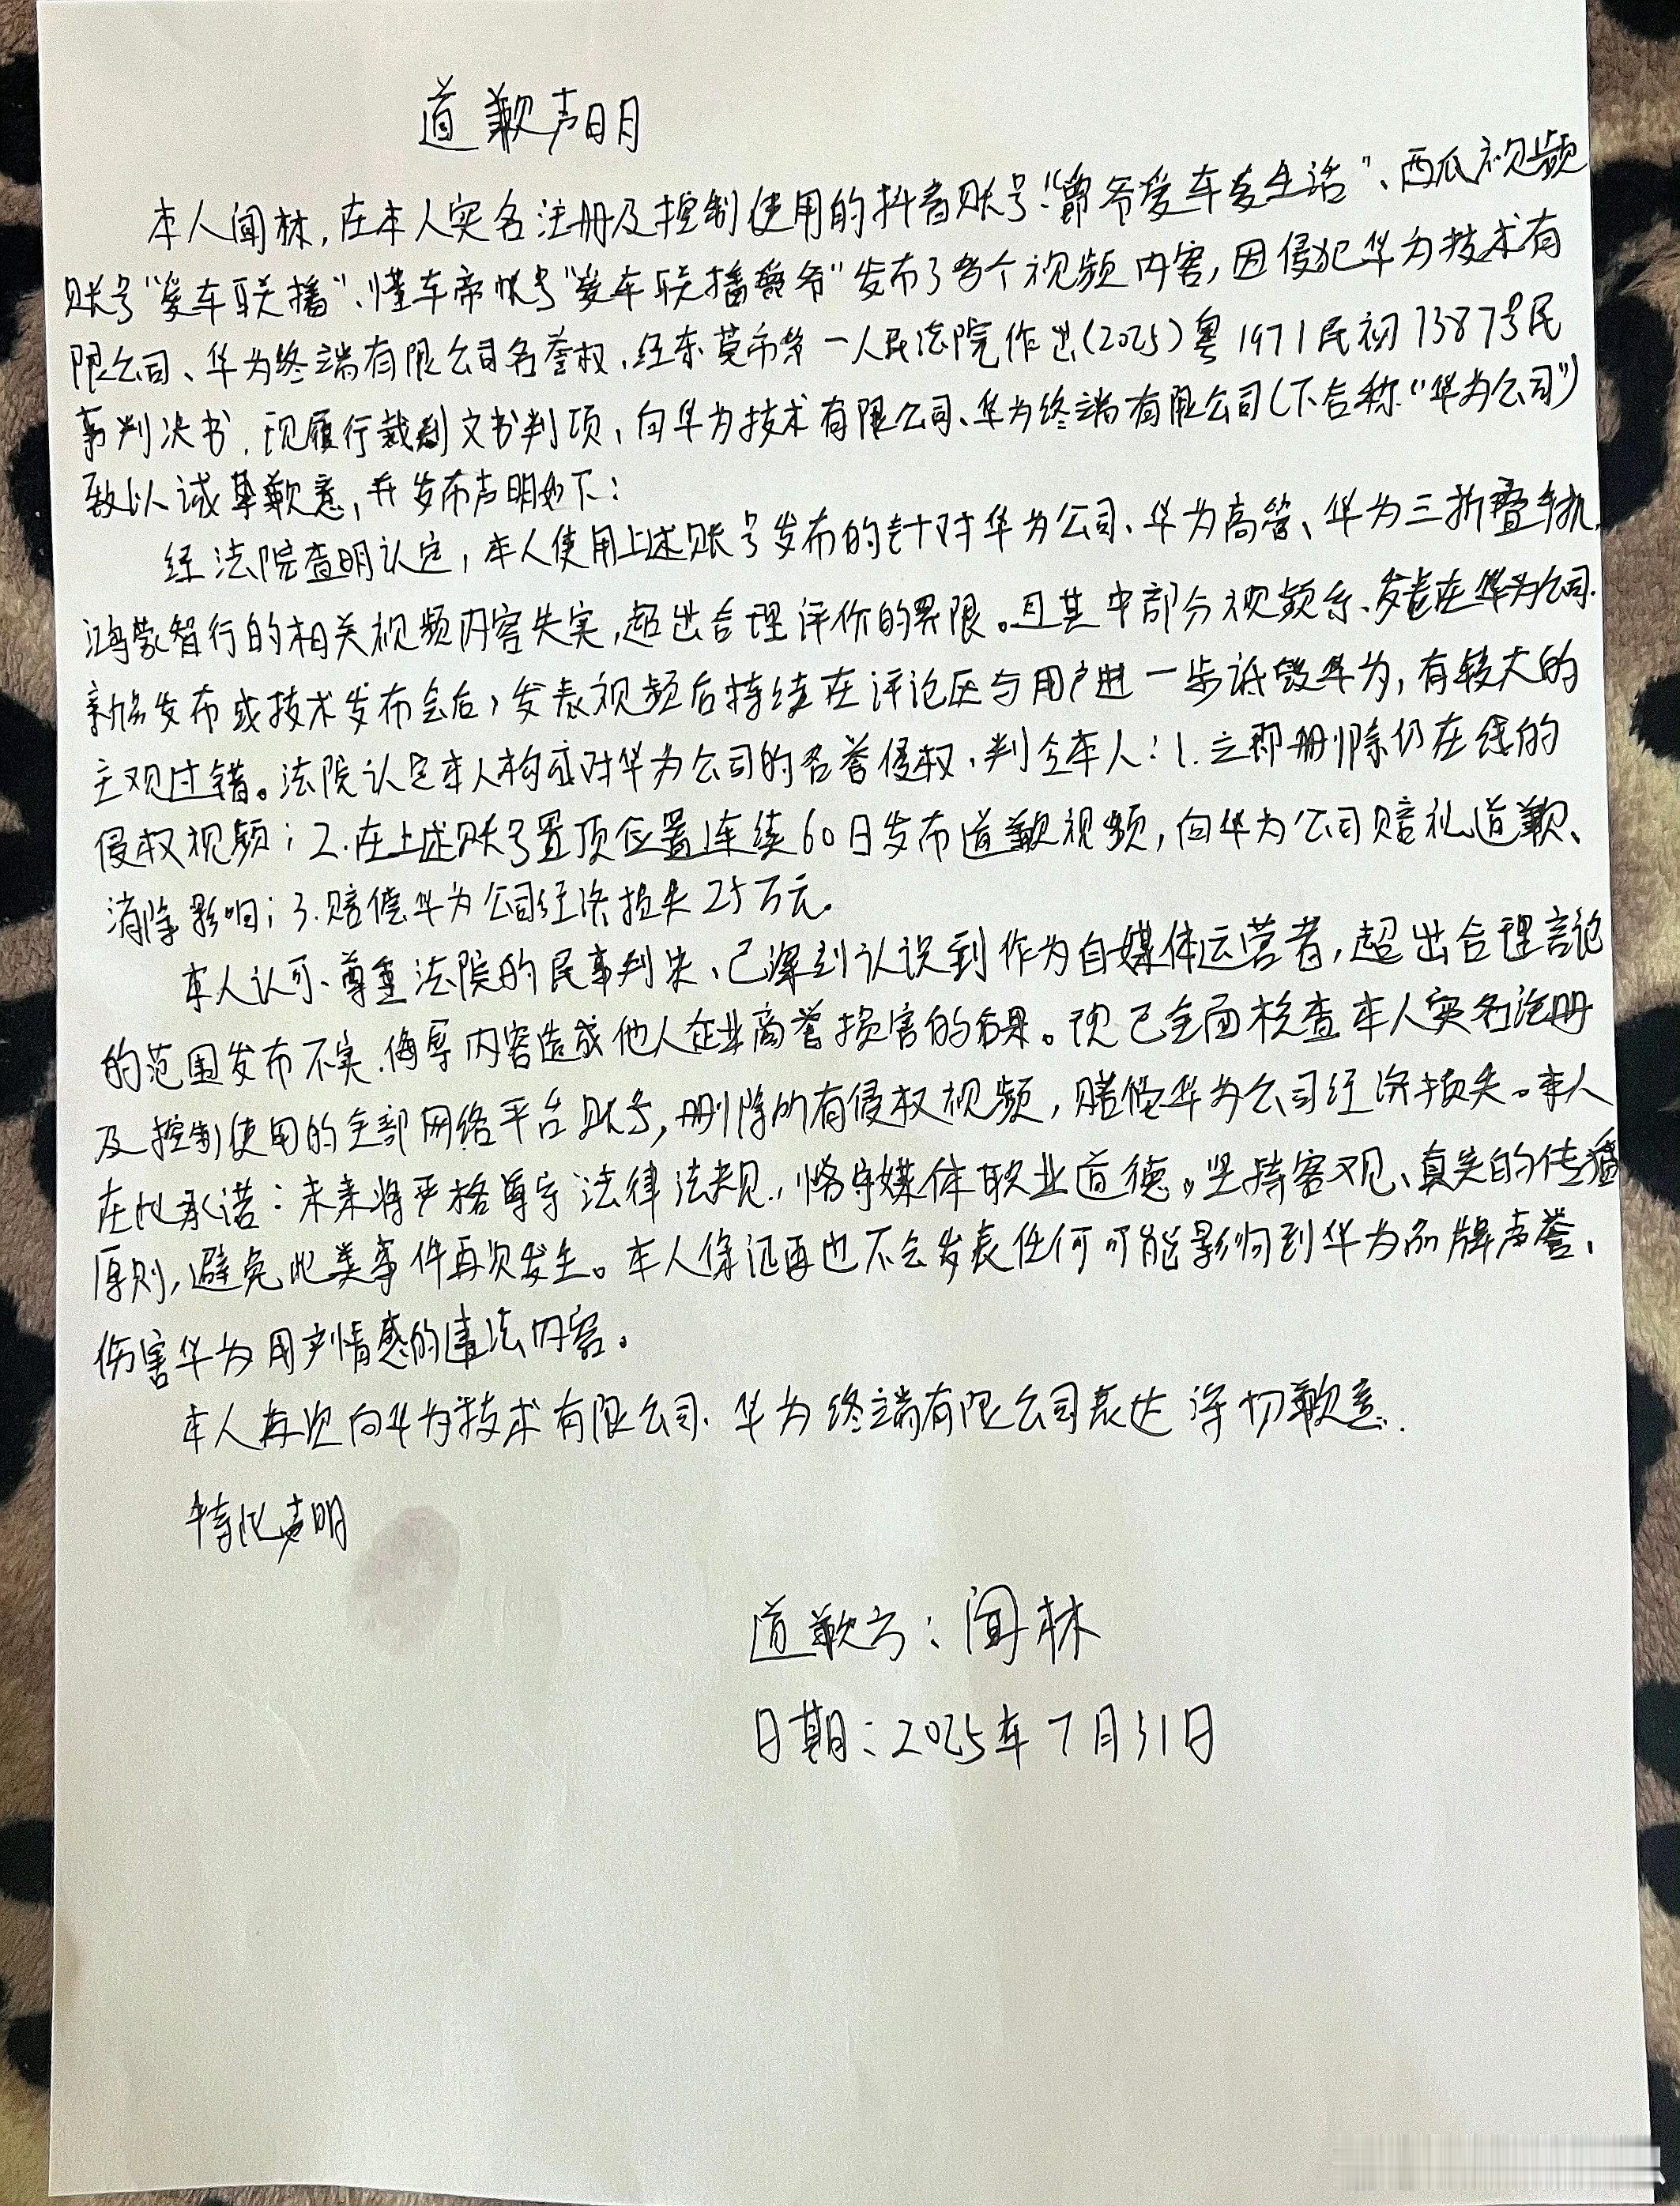 道歉声明
本人闻林，在本人实名注册及控制使用的抖音账号“爵爷爱车爱生活”、西瓜视频
账号“爱车联播”、懂车帝帐号“爱车联播爵爷”发布了多个视频内容，因侵犯华为技术有
限公司、华为终端有限公司名誉权，经东莞市第一人民法院作出（2025）粤1971民初7387号民
事判决书，现履行裁判文书判项，向华为技术有限公司、华为终端有限公司（下合称“华为公司”）
致以诚挚歉意，并发布声明如下：
经法院查明认定，本人使用上述账号发布的针对华为公司、华为高管、华为三折叠手机、
鸿蒙智行的相关视频内容失实，超出合理评价的界限。且其中部分视频系发表在华为公司
新品发布或技术发布会后，发表视频后持续在评论区与用户进一步诋毁华为，有较大的
主观过错。法院认定本人构成对华为公司的名誉侵权，判令本人：1.立即删除仍在线的
侵权视频；2.在上述账号置顶位置连续60日发布道歉视频，向华为公司赔礼道歉、
消除影响；3.赔偿华为公司经济损失25万元。
本人认可、尊重法院的民事判决、已深刻认识到作为自媒体运营者，超出合理言论
的范围发布不实、侮辱内容造成他人企业商誉损害的后果。现已全面核查本人实名注册
及控制使用的全部网络平台账号，删除所有侵权视频，赔偿华为公司经济损失。本人
在此承诺：未来将严格遵守法律法规，恪守媒体职业道德。坚持客观、真实的传播
原则，避免此类事件再次发生。本人保证再也不会发表任何可能影响到华为品牌声誉、
伤害华为用户情感的违法内容。
本人再次向华为技术有限公司、华为终端有限公司表达深切歉意.
特此声明
道歉方：闻林
日期：2025年7月31日